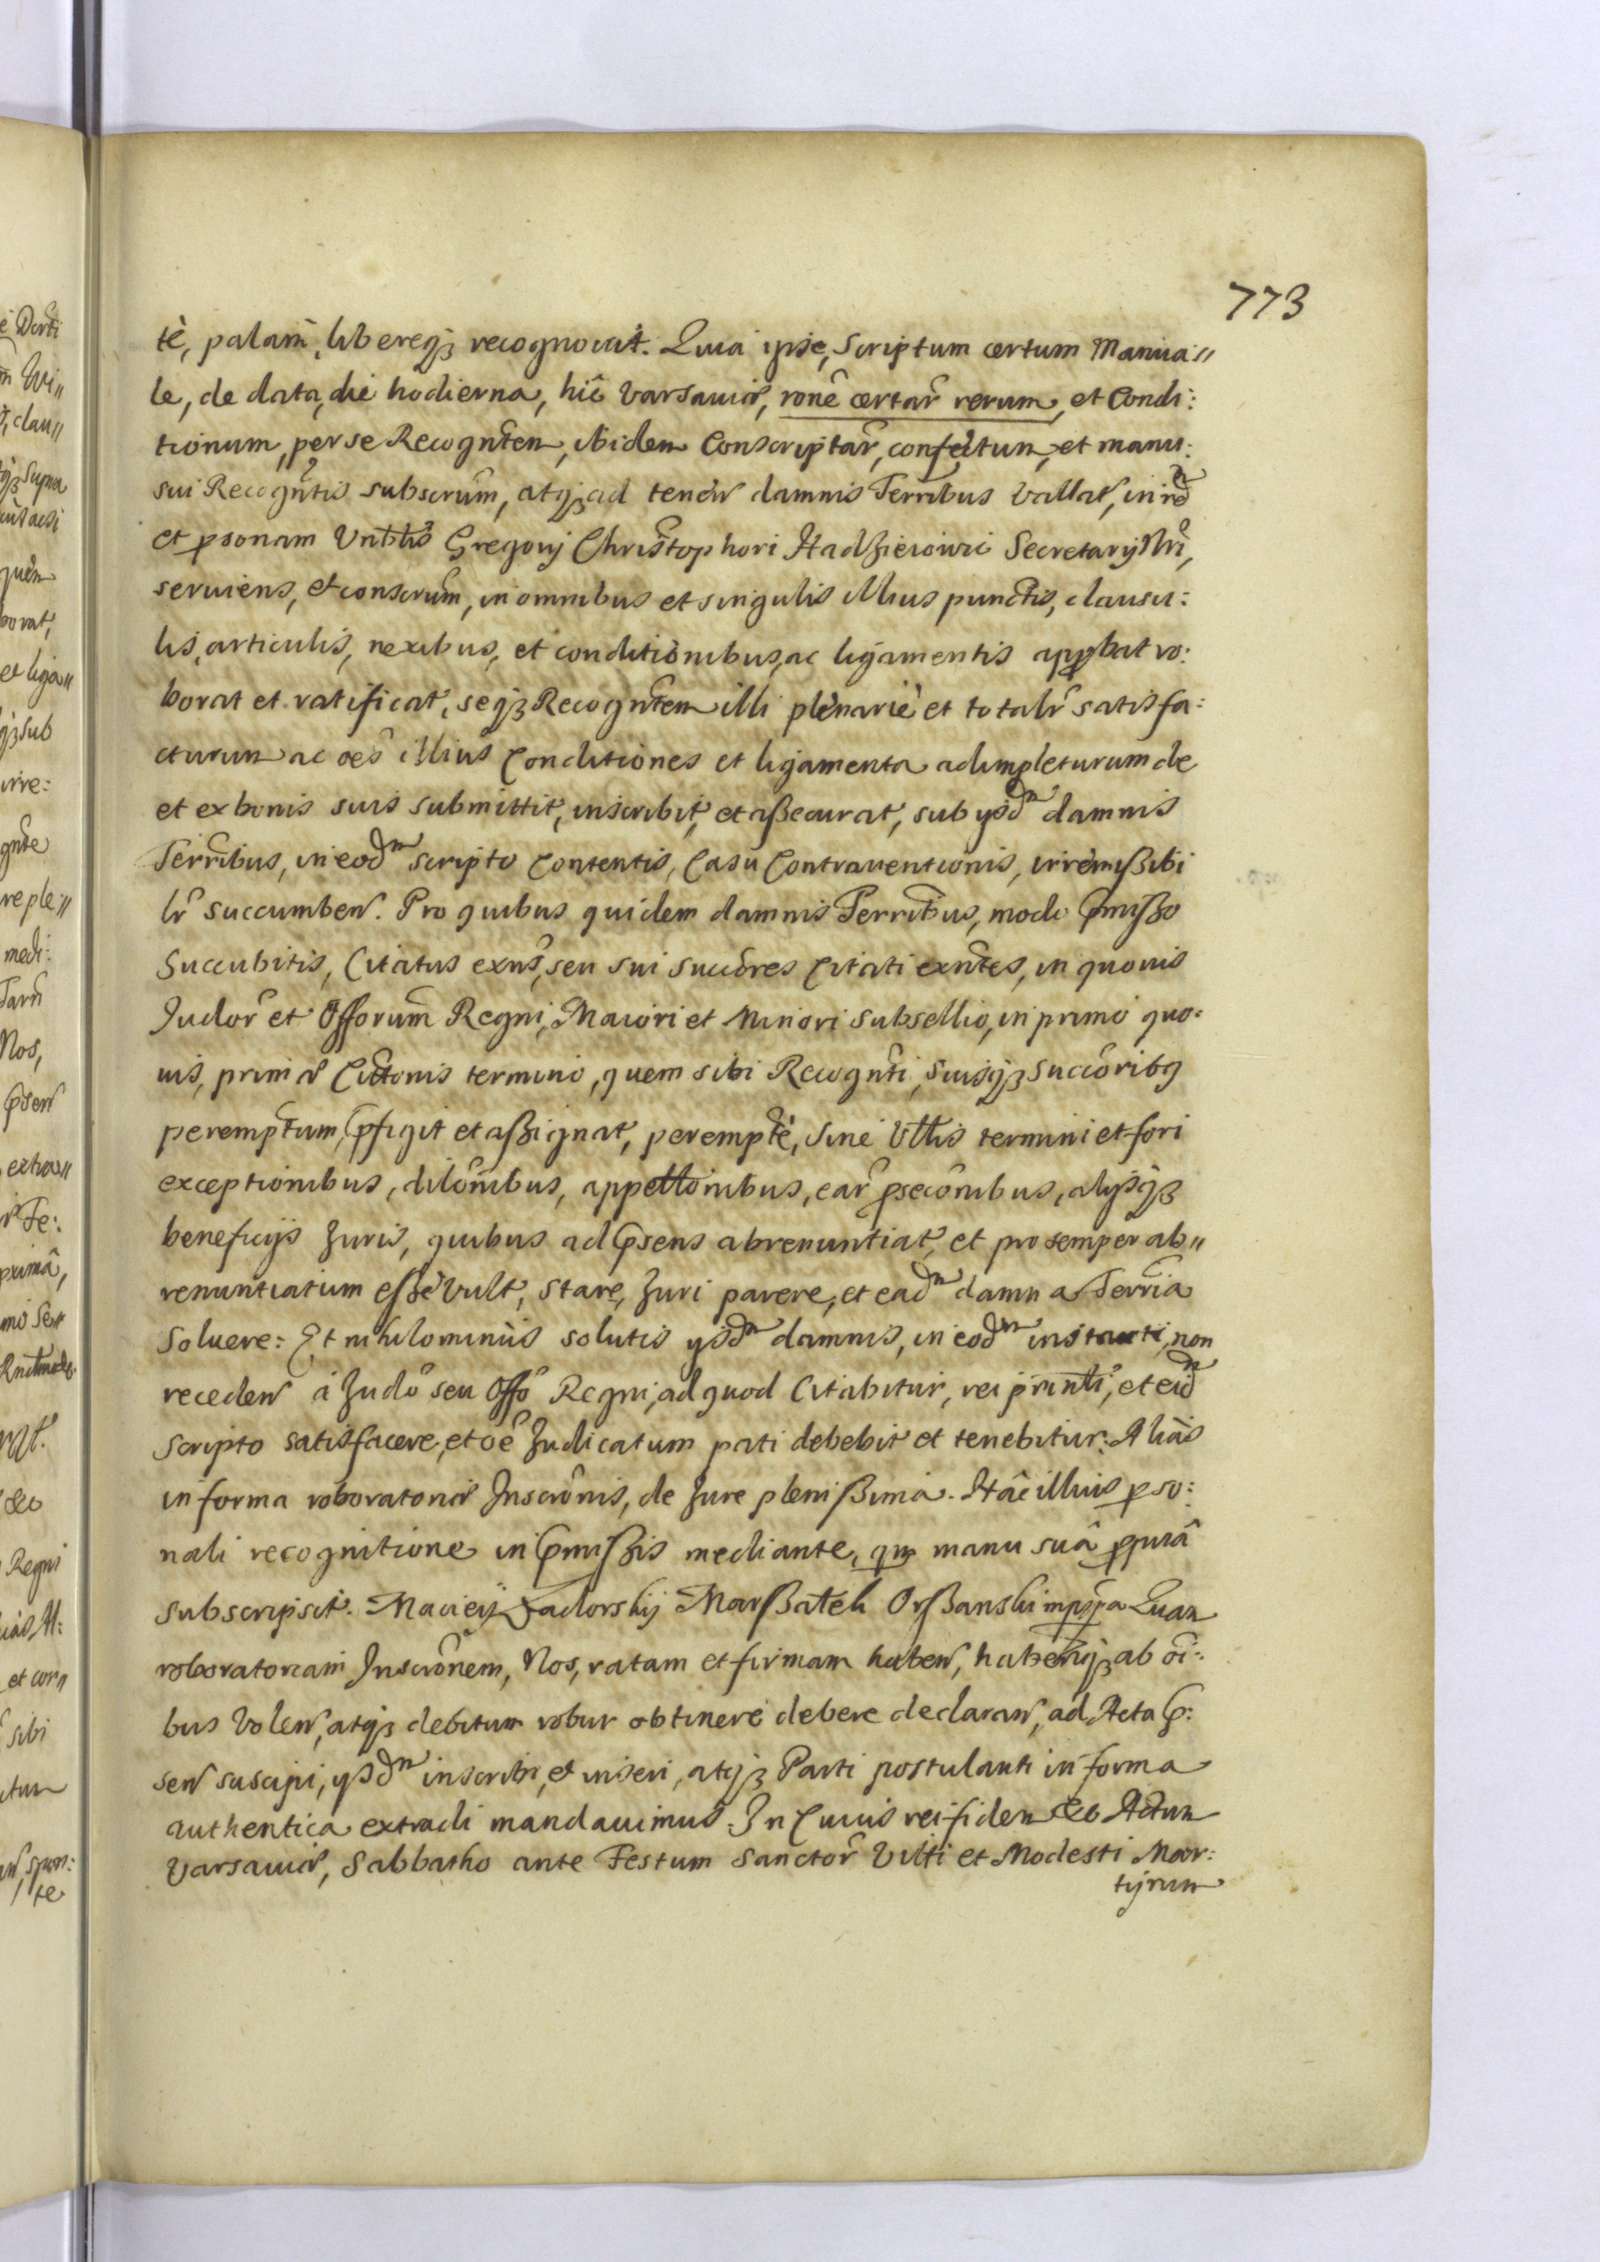 773
tè, palam, libereqz recognouit. Quia ipse, scriptum certum Manua〃
le, de data, die hodierna, hîc Varsauiæ, rone certar rerum, et Condi:
tionum, per se Recogntem, ibidem Conscriptar, confectum, et manu:
sui Recogntis subscrum, atqz ad tenen damnis Terribus Vallat, in rem
et psonam Vrblis Gregorij Christophori Hadziewic Secretarij Nri,
seruiens, et conscrum, in omnibus et singulis illius punctis, clausu:
lis, articulis, nexibus, et conditionibus, ac ligamentis approbat ro:
borat et ratificat, seqz Recogntem illi plenariè et totalr satisfa:
cturum ac oes illius Conditiones et ligamenta adimpleturum de
et ex bonis suis submittit, inscribit, et aßecurat, sub ijsdm damnis
Terribus, in eodm scripto Contentis, Casu Contrauentionis, irremißibi
lr succumben. Pro quibus quidem damnis Terribus, modo pmißo
Succubitis, Citatus exns, seu sui succores Citati exntes, in quouis
Judor et Offorum Regni, Maiori et Minori subsellio, in primo quo:
uis, primæ Cittonis termino, quem sibi Recognti, suisqz succoribq
peremptum, pfigit et aßignat, perempte, sine Vllis termini et fori
exceptionibus, dilonibus, appettonibus, ear psecombus, alijsqz
beneficijs Juris, quibus ad psens abrenuntiat, et pro semper ab〃
renuntiatum eße vult, stare, Juri parere, et eadm damna Terria
Soluere: Et nihilominùs solutis ijsdm damnis, in eodm instanti, non
receden à Judo seu Offo Regni, ad quod Citabitur, rei printi, et eidm
scripto satisfacere, et oe Judicatum pati debebit et tenebitur: Aliàs
in forma roboratoriæ Inscronis, de Jure plenißima. Hâc illius pso:
nali recognitione in pmißis mediante, qm manu suâ ppriâ
subscripsit. Macieij Zadorskij Marßałek Orßanski mppa Quam
roboratoriam Inscronem, Nos, ratam et firmam haben, haberiqz ab oi:
bus Volen, atqz debitum robur obtinere debere declaran, ad Acta p:
sen suscipi, ijsdm inscribi, et inseri, atqz Parti postulanti in forma
authentica extradi mandauimus. In Cuius rei fidem &c Actum
Varsauiæ, Sabbatho ante Festum Sanctor Viti et Modesti Mar:
tyrum